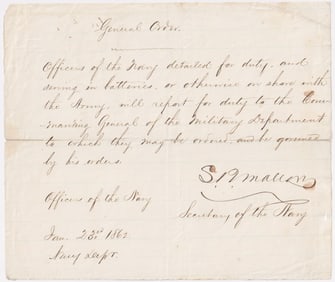 General Order.
Officers of the Navy detailed for duty, and
serving in batteries, or otherwise on shore with
the Army, will report for duty to the Com-
manding General of the Military Department
to which they may be ordered, and be governed
by his orders.
S. R. Mallory
Secretary of the Navy
Officers of the Navy
Jan. 23d 1862
Navy Dept.